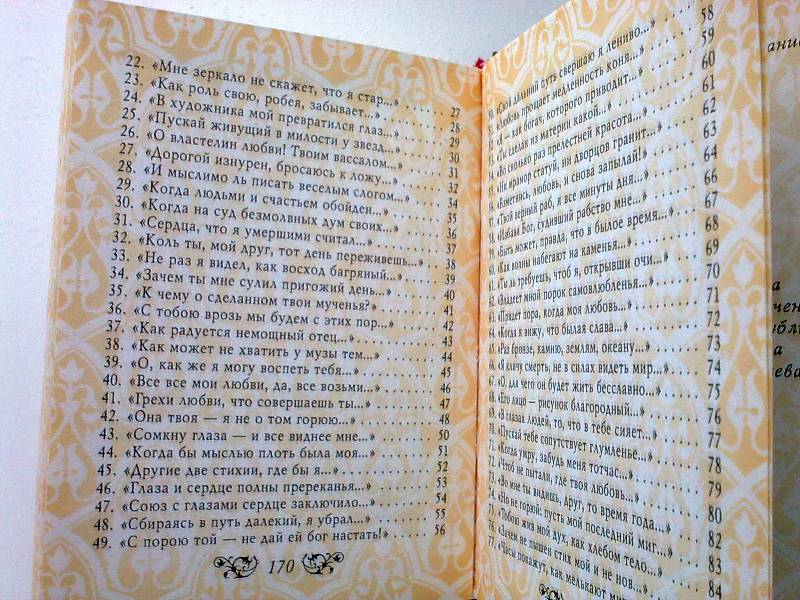 22. «Мне зеркало не скажет, что я стар...» 27
23. «Как роль свою, робея, забывает...» 28
24. «В художника мой превратился глаз...» 29
25. «Пускай живущий в милости у звезд... 30
26. «О властелин любви! Твоим вассалом... 31
27. «Дорогой изнурен, бросаюсь к ложу...» 32
28. «И мыслимо ль писать веселым слогом...» 34
29. «Когда людьми и счастьем обойден...» 35
30. «Когда на суд безмолвных дум своих...» 36
31. «Сердца, что я умершими считал...» 37
32. «Коль ты, мой друг, тот день переживешь...» 38
33. «Не раз я видел, как восход багряный...» 39
34. «Зачем ты мне сулил пригожий день...» 40
35. «К чему о сделанном твои мученья?» 41
36. «С тобою врозь мы будем с этих пор...» 42
37. «Как радуется немощный отец...» 43
38. «Как может не хватить у музы тем...» 44
39. «О, как же я могу воспеть тебя...» 45
40. «Все все мои любви, да, все возьми...» 46
41. «Грехи любви, что совершаешь ты...» 47
42. «Она твоя — я не о том горюю...» 48
43. «Сомкну глаза — и все виднее мне...» 50
44. «Когда бы мыслью плоть была моя...» 51
45. «Другие две стихии, где бы я...» 52
46. «Глаза и сердце полны пререканья...» 53
47. «Союз с глазами сердце заключило...» 54
48. «Сбираясь в путь далекий, я убрал...» 55
49. «С порою той — не дай ей бог настать!» 56
170
«Свой дальний путь свершаю я лениво...» 58
«Любовь прощает медленность коня...» 59
«Я — как богач, которого приводит...» 60
«Ты сделан из материи какой...» 61
«Во сколько раз прелестней красота...» 62
«Ни мрамор статуй, ни дворцов гранит...» 63
любовь, и снова запылай!» 64
«Твой верный раб, я все минуты дня...» 66
«Избави Бог, судивший рабство мне...» 67
«Быть может, правда, что в былое время...» 68
60. «Как волны набегают на каменья...» 69
61. «Ты ль требуешь, чтоб я, открывши очи...» 70
62. «Владеет мной порок самовлюбленья...» 71
63. «Придет пора, когда моя любовь...» 72
64. «Когда я вижу, что былая слава...» 73
65. «Раз бронзе, камню, землям, океану...» 74
66. «Я кличу смерть, не в силах видеть мир...» 75
67. «О, для чего он будет жить бесславно...» 76
68. «Его лицо — рисунок благородный...» 77
69. «В глазах людей, то, что в тебе сияет...» 78
70. «Пускай тебе сопутствует глумленье...» 79
71. «Когда умру, забудь меня тотчас...» 80
72. «Чтоб не пытали, где твоя любовь...» 82
73. «Во мне ты видишь, друг, то время года...» 83
74. «Но не горюй: пусть мой последний миг... 84
75. «Тобою жив мой дух, как хлебом тело...»
76. «Зачем не пышен стих мой и не нов...»
77. «Часы покажут, как мелькают